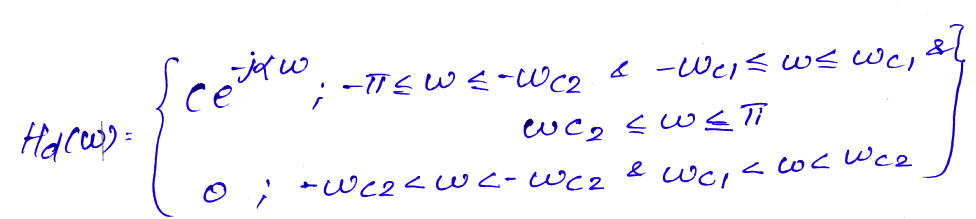 Ce^{-jαω} ; -π ≤ ω ≤ -ωc2 & -ωc1 ≤ ω ≤ ωc1 &
Hd(ω) = { ωc2 ≤ ω ≤ π }
0 ; -ωc2 < ω < -ωc2 & ωc1 < ω < ωc2